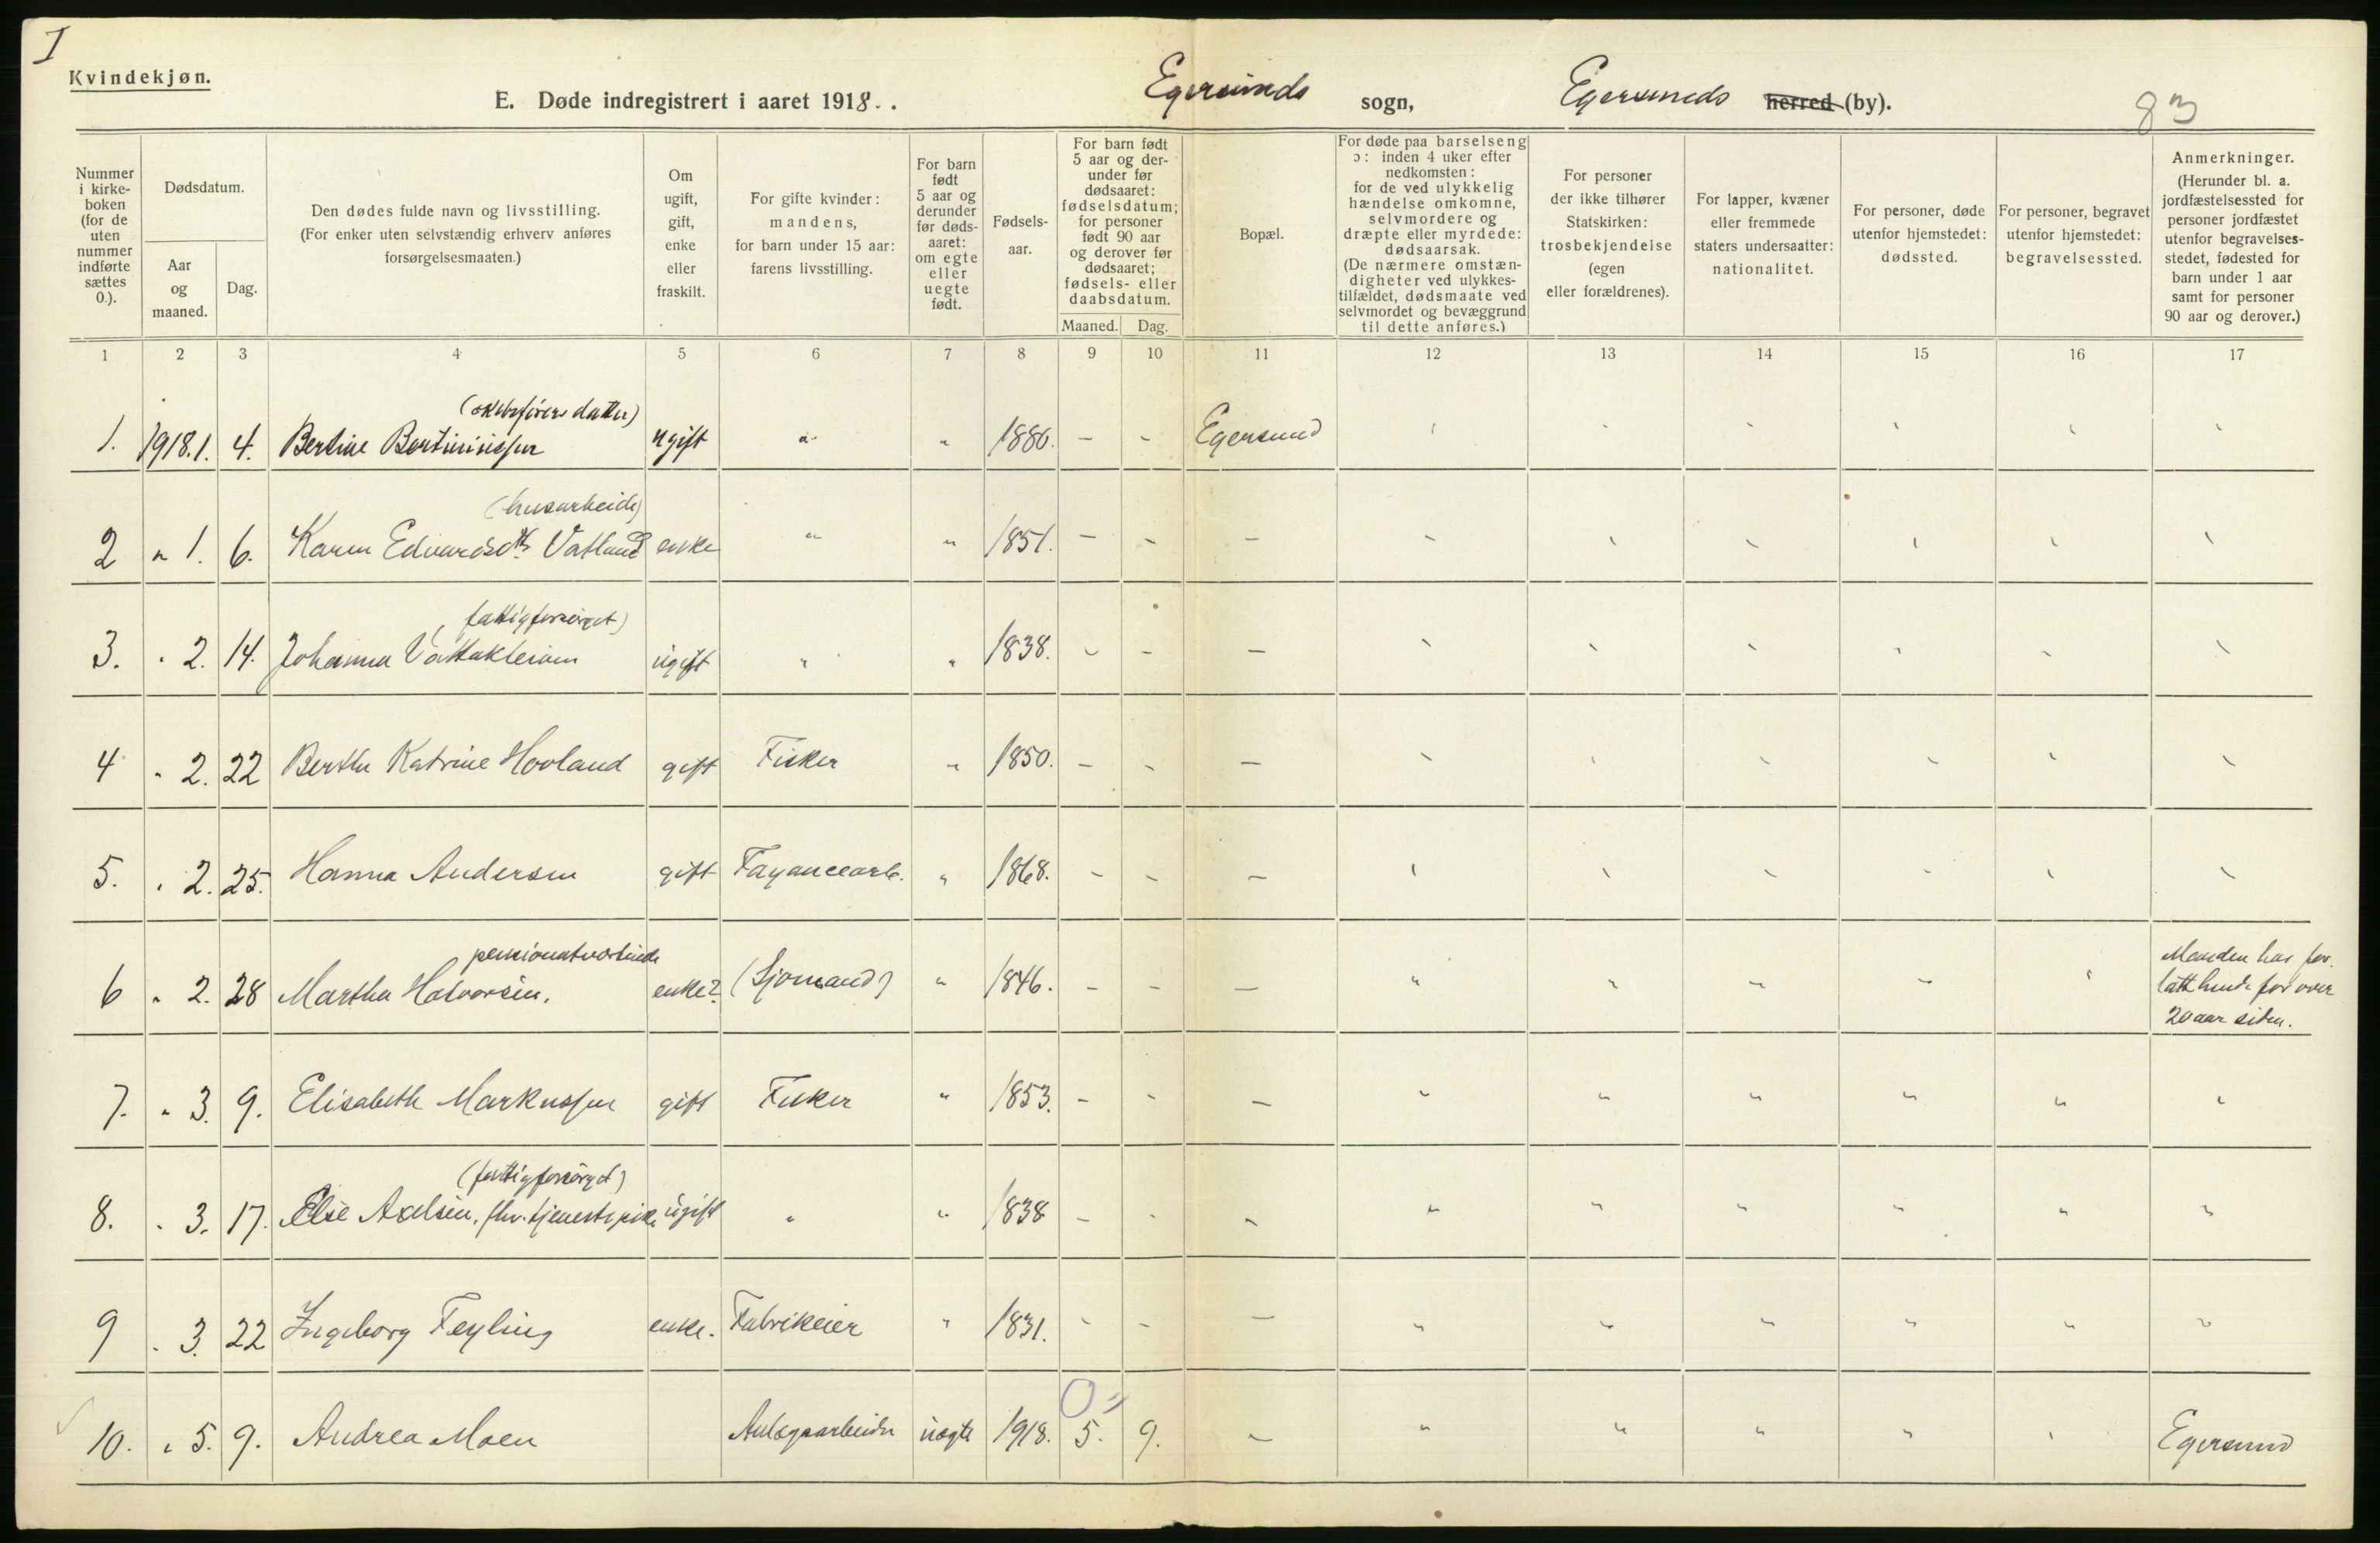 I
Kvindekjøn.
E. Døde indregistrert i aaret 1918. .
Egersunds sogn, Egersunds herred (by).
83
Nummer i kirkeboken (for de uten nummer indførte sættes 0.).
Dødsdatum.
Aar og maaned.
Dag.
Den dødes fulde navn og livsstilling.
(For enker uten selvstændig erhverv anføres
forsørgelsesmaaten.)
Om ugift, gift, enke eller fraskilt.
For gifte kvinder:
mandens,
for barn under 15 aar:
farens livsstilling.
For barn født 5 aar og derunder før dødsaaret: om egte eller uegte født.
Fødselsaar.
For barn født 5 aar og derunder før dødsaaret: fødselsdatum; for personer født 90 aar og derover før dødsaaret; fødsels- eller daabsdatum.
Maaned. Dag.
Bopæl.
For døde paa barselseng
ɔ: inden 4 uker efter
nedkomsten:
for de ved ulykkelig
hændelse omkomne,
selvmordere og
dræpte eller myrdede:
dødsaarsak.
(De nærmere omstæn-
digheter ved ulykkes-
tilfældet, dødsmaate ved
selvmordet og bevæggrund
til dette anføres.)
For personer
der ikke tilhører
Statskirken:
trosbekjendelse
(egen
eller forældrenes).
For lapper, kvæner
eller fremmede
staters undersaatter:
nationalitet.
For personer, døde
utenfor hjemstedet:
dødssted.
For personer, begravet
utenfor hjemstedet:
begravelsessted.
Anmerkninger.
(Herunder bl. a.
jordfæstelsessted for
personer jordfæstet
utenfor begravelses-
stedet, fødested for
barn under 1 aar
samt for personer
90 aar og derover.)
1 2 3 4 5 6 7 8 9 10 11 12 13 14 15 16 17
(skibsførers datter)
1. 1918.1. 4. Bertine Bertiniussen ugift " " 1880. - - Egersund
(husarbeide)
2 " 1. 6. Karen Edvardsdtr Vatland enke " " 1851. - - -
(fattigforsørget)
3. " 2. 14. Johanna ugift " " 1838. - - -
4 " 2. 22 Berthe Katrine Hovland gift Fisker " 1850. - - -
5. " 2. 25. Hanna Andersen gift Fayancearb. " 1868. - - -
pensionatværtinde
6 " 2. 28 Martha Halvorsen. enke? (Sjømand) " 1846. - - -
Manden har for-
latt hende for over
20 aar siden.
7. " 3. 9. Elisabeth Markussen gift Fisker " 1853. - - -
(fattigforsørget)
8. " 3. 17. Else Axelsen, fhv. tjenestepike ugift " " 1838 - - -
9 " 3. 22 Ingeborg Feyling enke. Fabrikeier " 1831. - - -
10. " 5. 9. Andrea Moen Anlægsarbeider uegte 1918. 5. 9. - Egersund